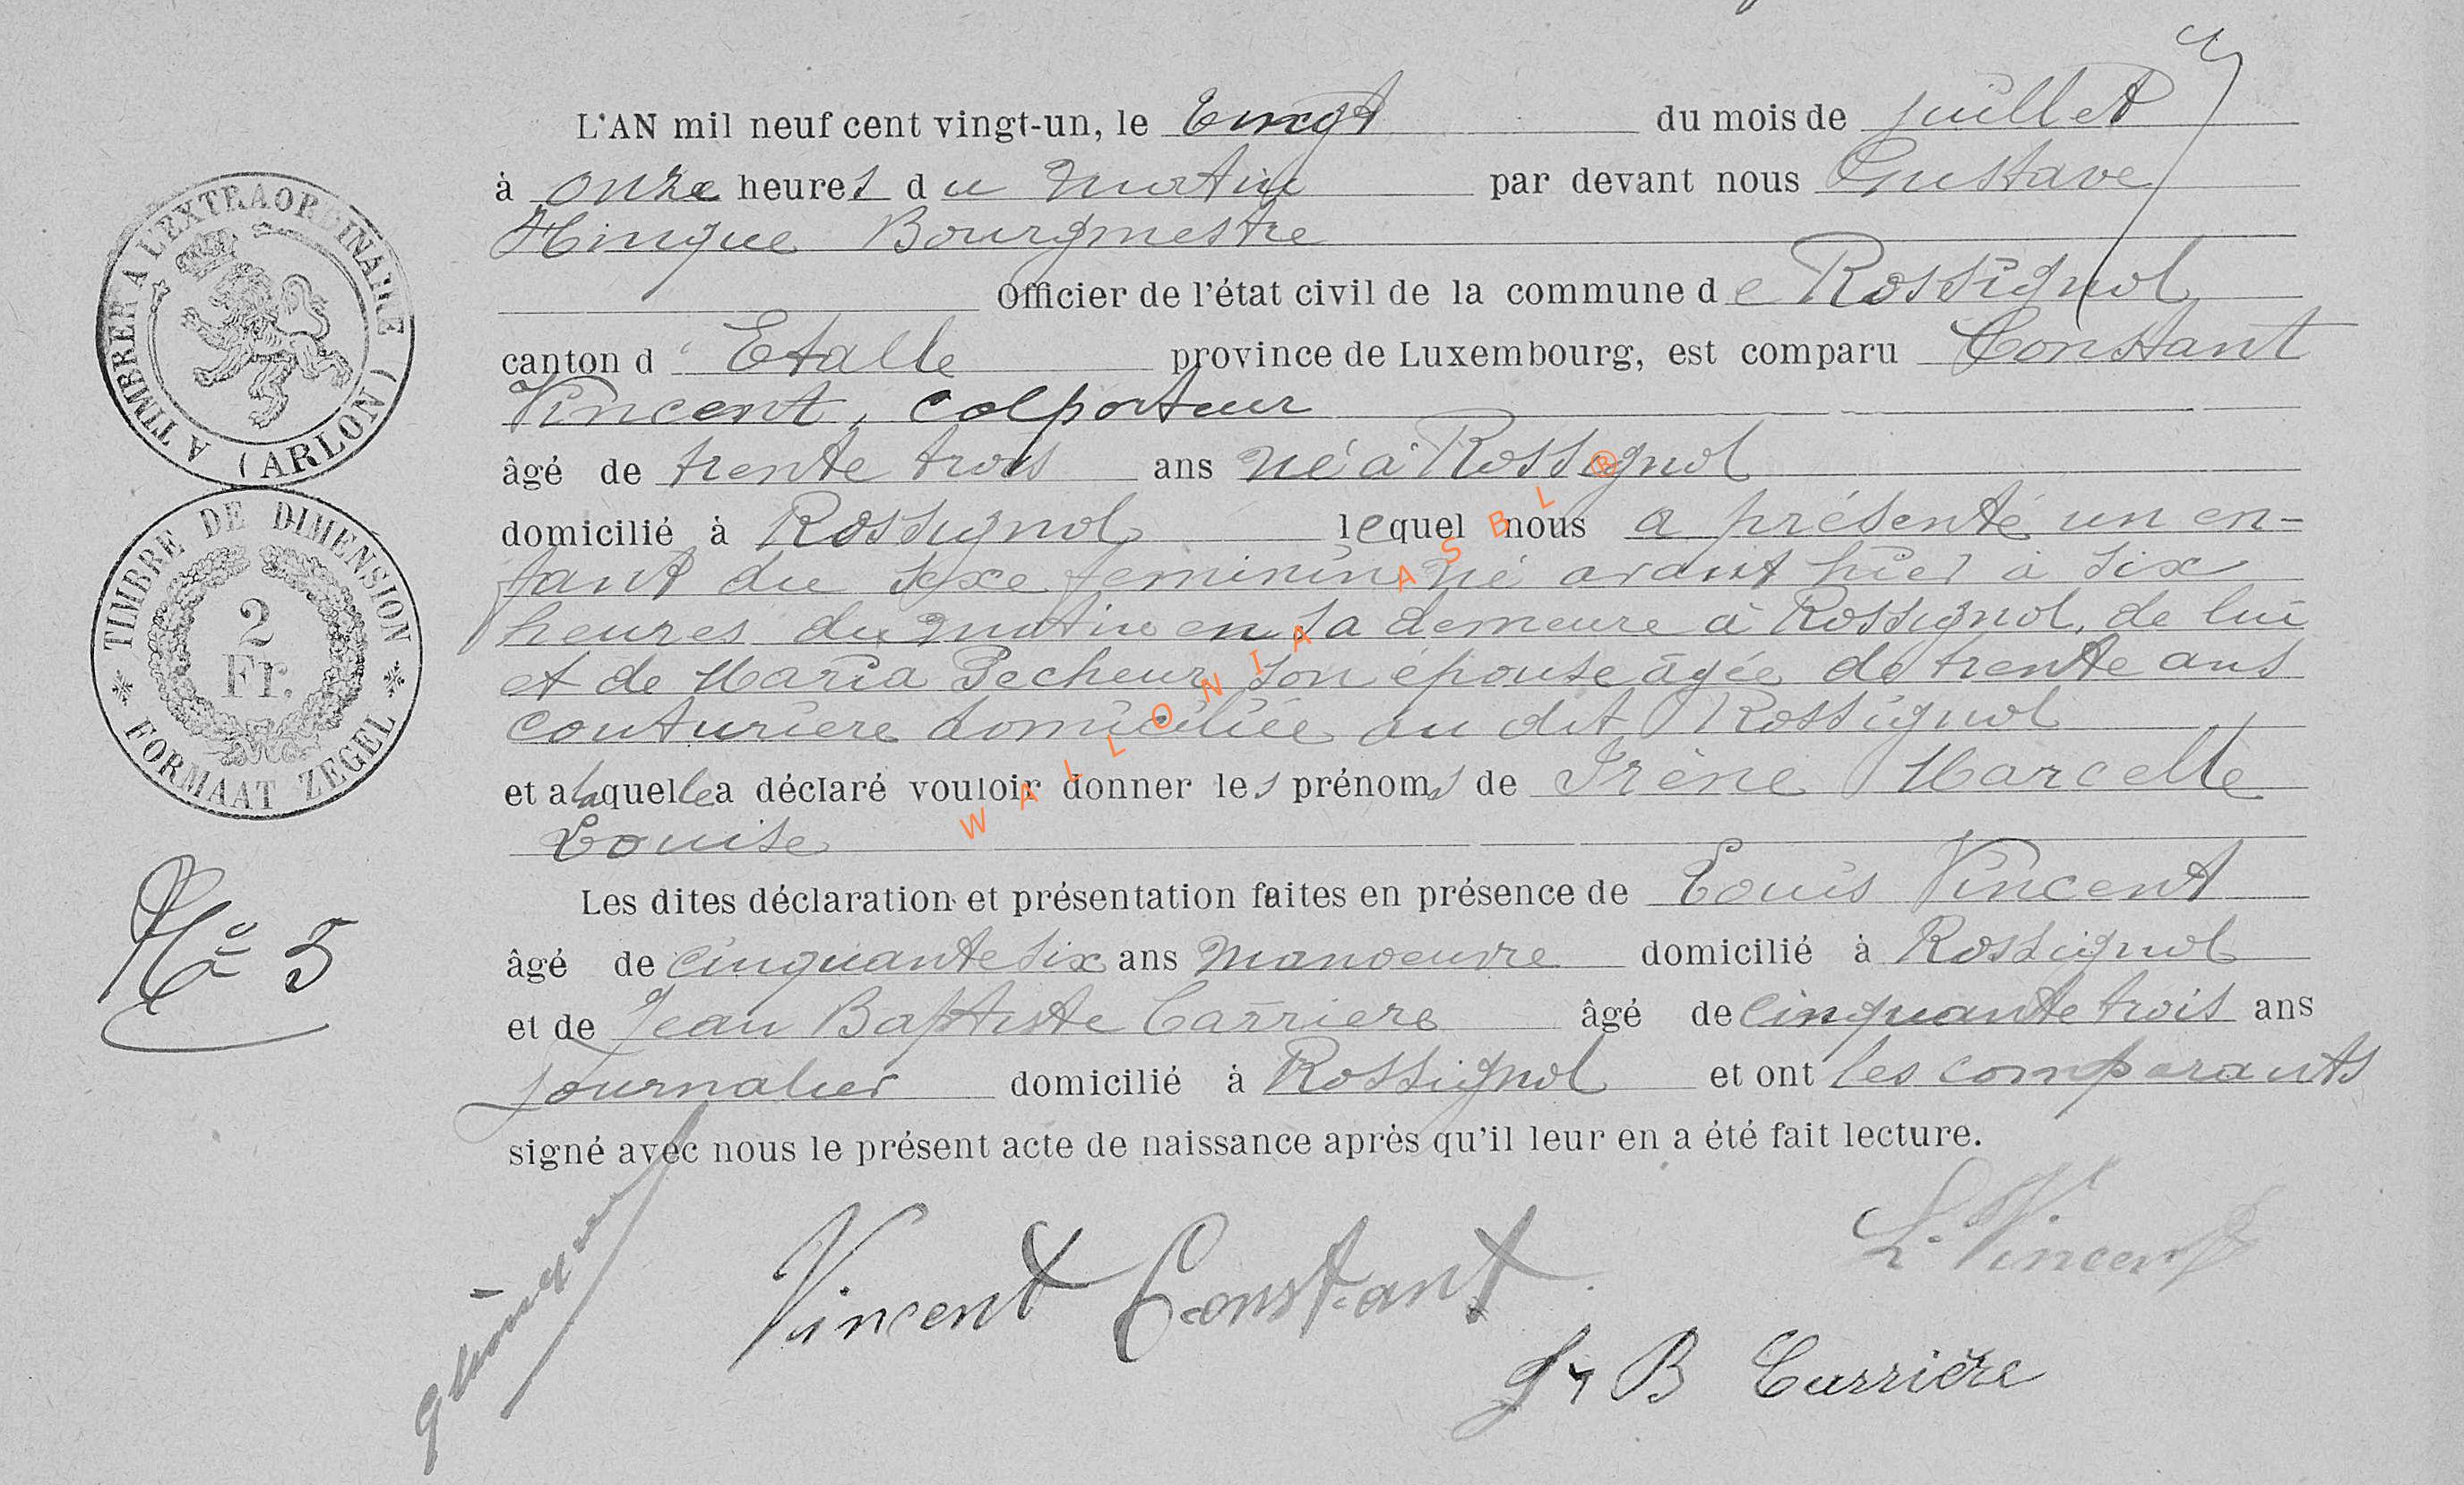 L'AN mil neuf cent vingt-un, le vingt du mois de juillet
à onze heures du matin par devant nous Gustave
Hinque Bourgmestre
Officier de l'état civil de la commune de Rossignol
canton d' Etalle province de Luxembourg, est comparu Constant
Vincent, colporteur
âgé de trente trois ans né à Rossignol
domicilié à Rossignol lequel nous a présenté un en-
fant du sexe feminin né avant hier à six
heures du matin en sa demeure à Rossignol, de lui
et de Maria Pecheur son épouse âgée de trente ans
couturière domiciliée au dit Rossignol
et a laquelle a déclaré vouloir donner les prénoms de Irène Marcelle
Louise
Les dites déclaration et présentation faites en présence de Louis Vincent
âgé de cinquante six ans manoeuvre domicilié à Rossignol
et de Jean Baptiste Carrière âgé de cinquante trois ans
journalier domicilié à Rossignol et ont les comparants
signé avec nous le présent acte de naissance après qu'il leur en a été fait lecture.
Vincent Constant
L. Vincent
J B Carrière
A TIMBRER A L'EXTRAORDINAIRE (ARLON)
TIMBRE DE DIMENSION
2
Fr.
FORMAAT ZEGEL
No 5
WALLONIA ASBL ®